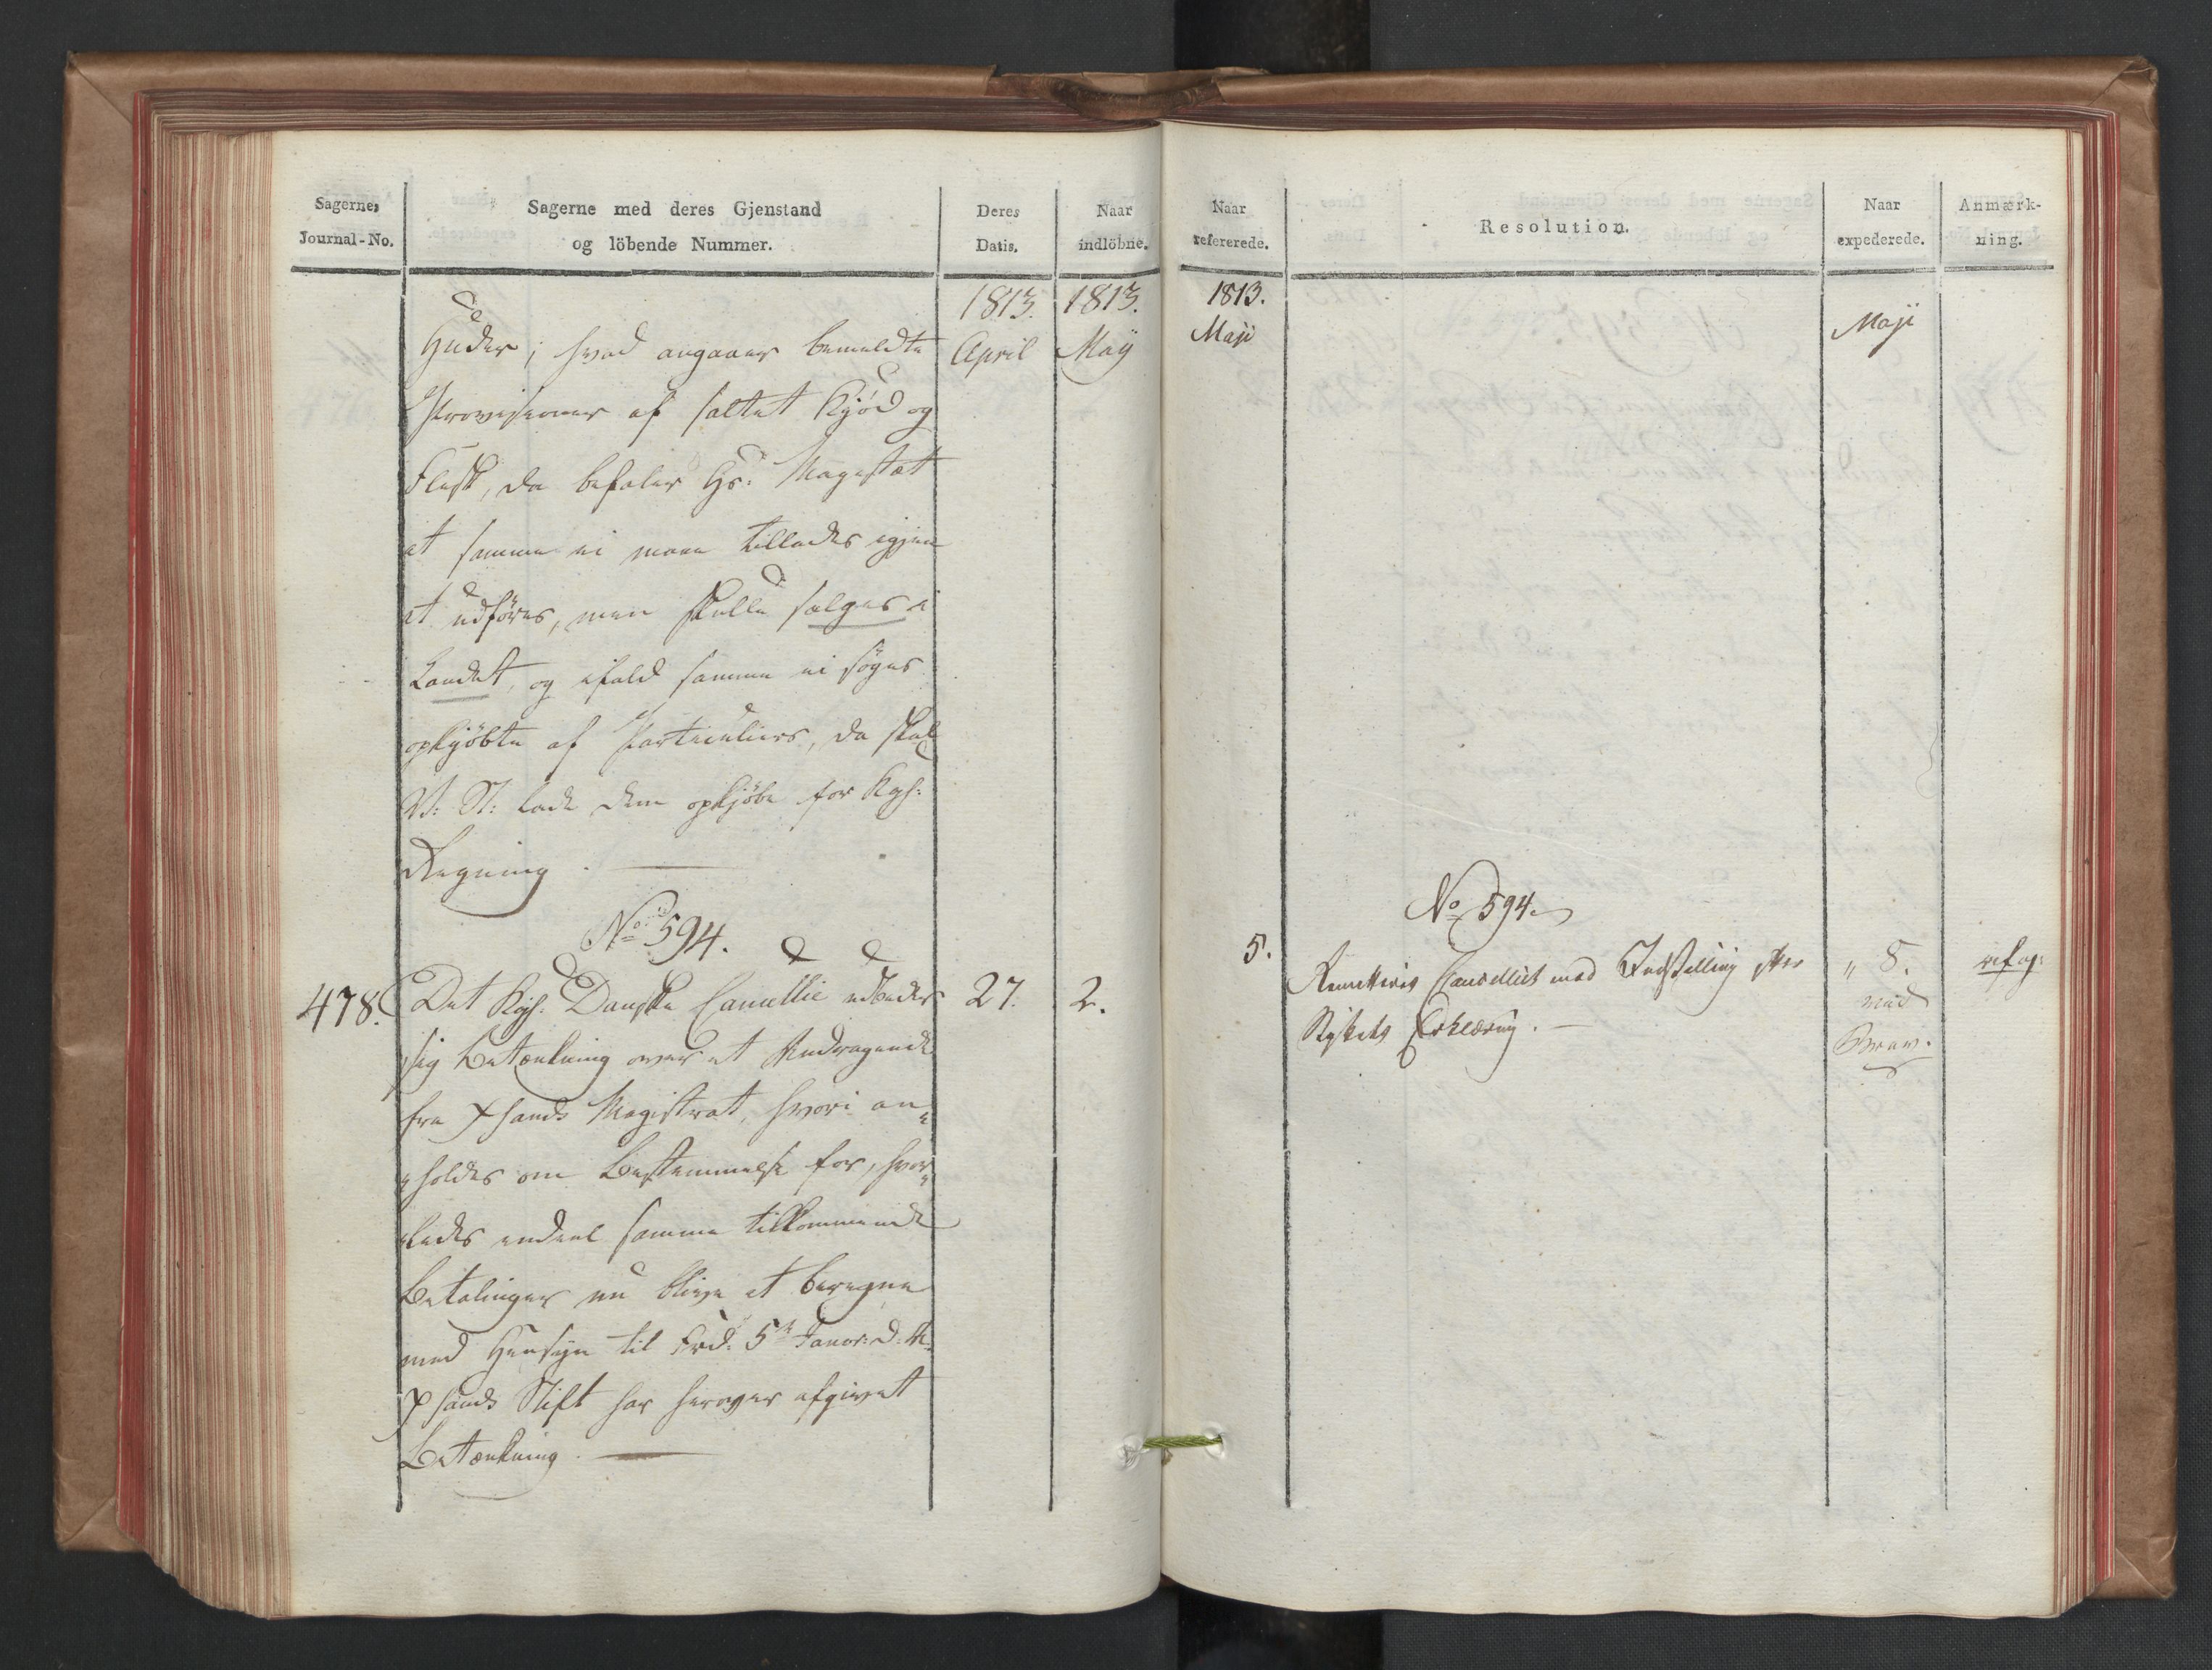 Sagernes
Journal-No.
Sagerne med deres Gjenstand
og löbende Nummer.
Deres
Datis.
Naar
indlöbne.
1813. 1813.
April Maÿ
Huder; hvad angaaer bemeldte
Provisioner af saltet Kjöd og
Flesk, da befaler Hs: Magestæt
at samme ei maae tillades igjen
at udföres, men skulle sælges i
Landet, og ifald samme ei söges
opkjöbte af Particuliers, da skal
V: St: lade dem opkjöbe for Kgl:
Regning.
No 594.
478. Det Kgl. Danske Cancellie udbeder 27. 2.
sig Betænkning over et Andragende
fra Xsands Magistrat, hvori an„
„holdes om Bestemmelse for, hvor„
„ledes endeel samme tilkommende
Betalinger nu blive at beregne
med Hensyn til Frd. 5te Januar: d. A.
Xsands Stift har herover afgivet
Betænkning.
Naar
refererede.
Resolution.
Naar
expederede.
Anmærk-
ning.
1813.
Maji
Maji
No 594.
5. Remitteris Cancelliet med Indstilling efter „ 8. ref af:
Stykets Erklæring. med
Brev.